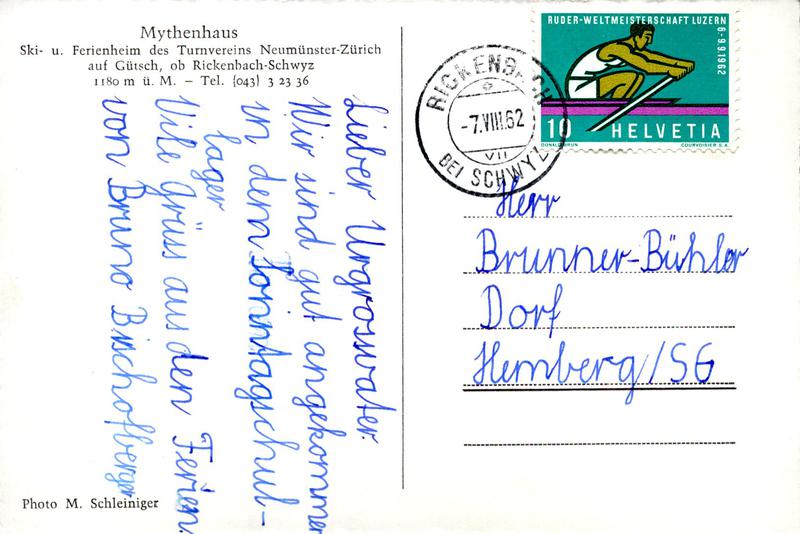 Mythenhaus
Ski- u. Ferienheim des Turnvereins Neumünster-Zürich
auf Gütsch, ob Rickenbach-Schwyz
1180 m ü. M. – Tel. (043) 3 23 36
Lieber Urgrosvater.
Wir sind gut angekommen
in dem Sonntagschul-
lager
Vile Grüss aus den Ferien.
von Bruno Bischofberger
Photo M. Schleiniger
RICKENBACH
-7.VIII.62
VII
BEI SCHWYZ
RUDER-WELTMEISTERSCHAFT LUZERN
6-9.9.1962
10 HELVETIA
DONALD BRUN COURVOISIER S.A.
Herr
Brunner-Bühler
Dorf
Hemberg/SG